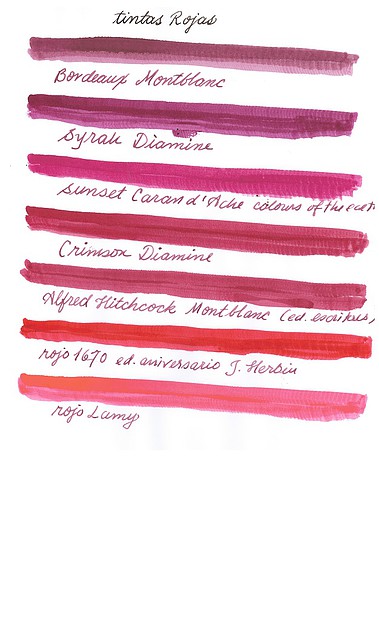 tintas Rojas
Bordeaux Montblanc
Syrah Diamine
Sunset Caran d'Ache colours of the eart
Crimson Diamine
Alfred Hitchcock Montblanc (ed. escritores)
rojo 1670 ed. aniversario J. Herbin
rojo Lamy